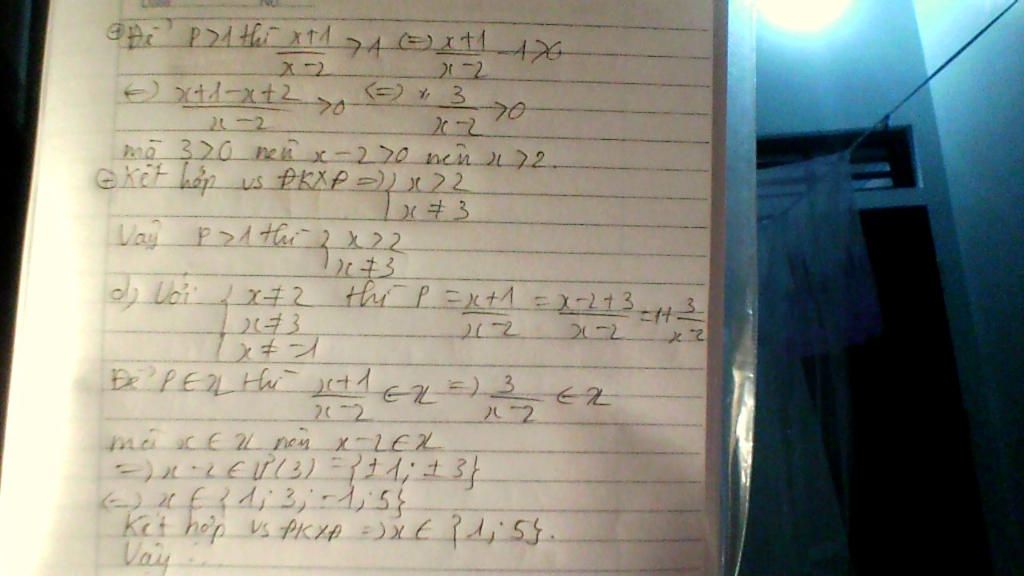 + Để P>1 thì (x+1)/(x-2) >1 (=) (x+1)/(x-2) - 1>0
(=) (x+1-x+2)/(x-2) >0 (=) 3/(x-2) >0
mà 3>0 nên x-2>0 nên x>2.
+ Kết hợp vs ĐKXĐ =) { x>2
x ≠ 3
Vậy P>1 thì { x>2
x≠3
d) Với { x≠2 thì P = (x+1)/(x-2) = (x-2+3)/(x-2) = 1+ 3/(x-2)
x≠3
x≠-1
Để P∈Z thì (x+1)/(x-2) ∈ Z =) 3/(x-2) ∈ Z
mà x∈Z nên x-2∈Z
=) x-2∈Ư(3) = {±1; ±3}
(=) x∈{1; 3; -1; 5}
Kết hợp vs ĐKXĐ =) x∈ {1; 5}.
Vậy ...